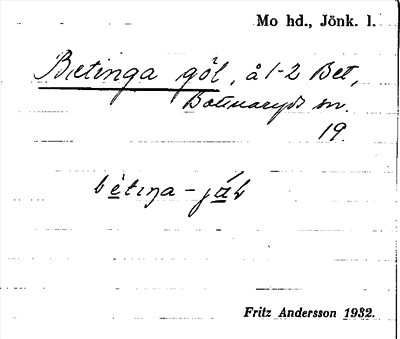 Mo hd., Jönk. l.
Betinga göl, å 1-2 Bet,
Bottnaryds sn.
19.
bètiŋa -
Fritz Andersson 1932.